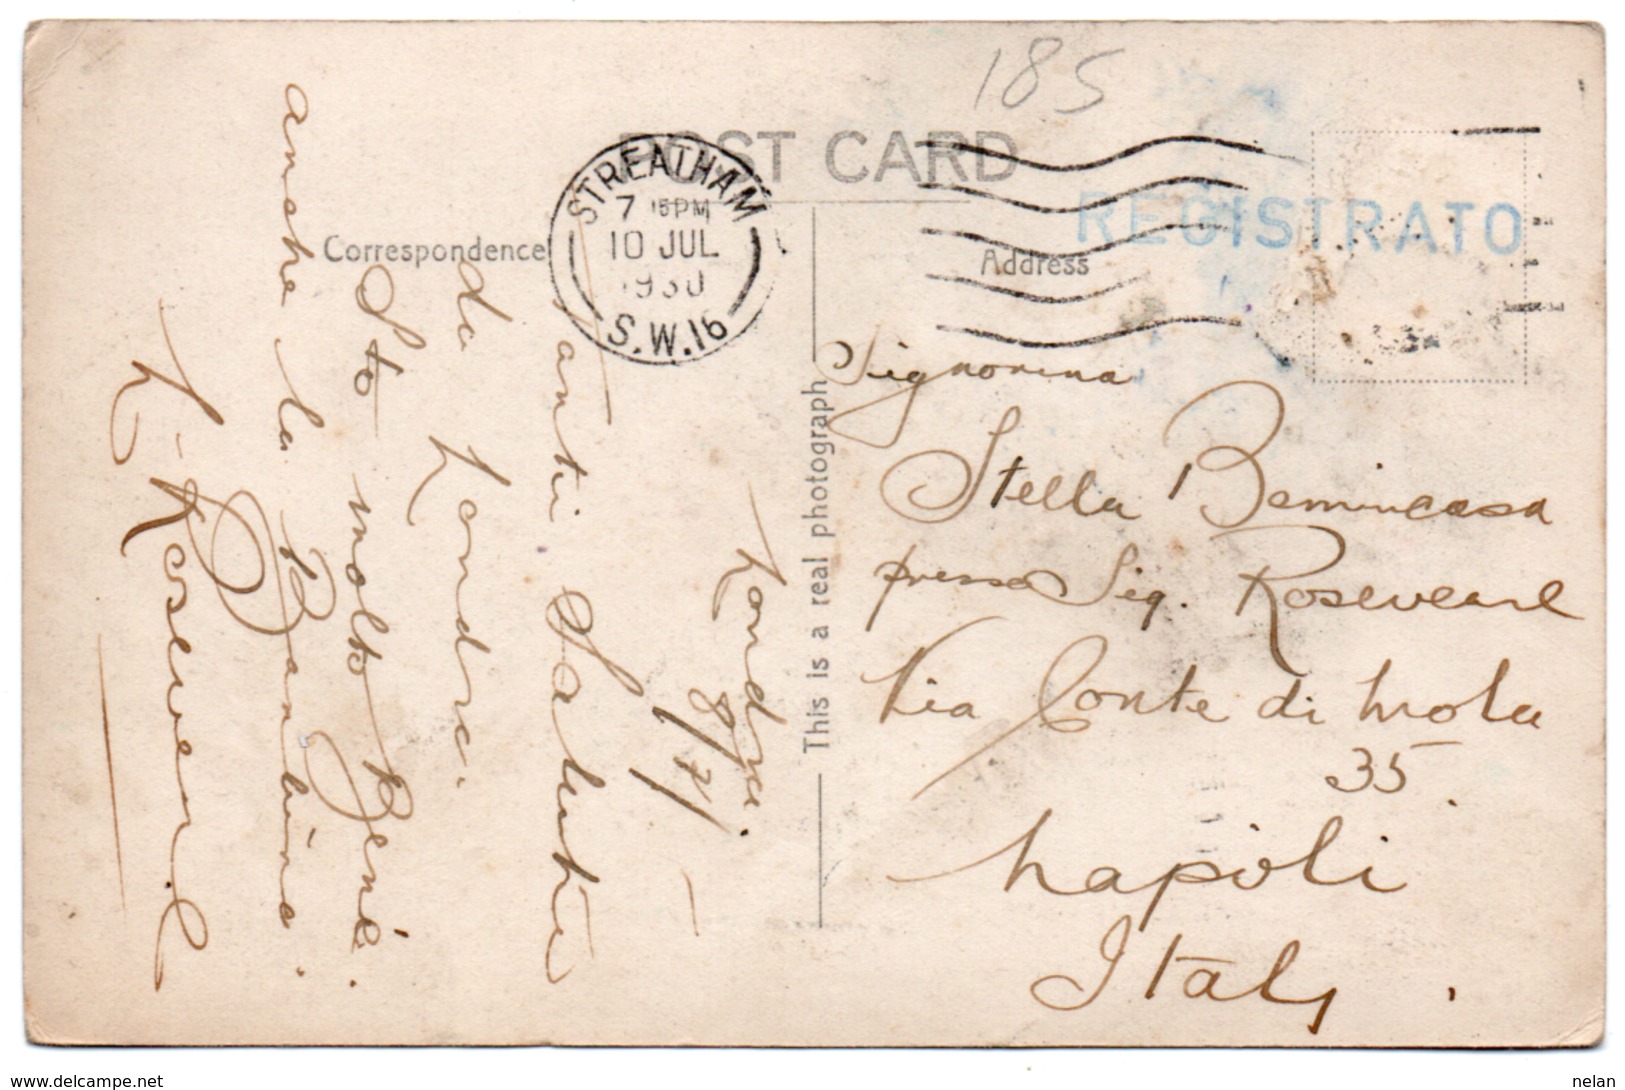 185
POST CARD
STREATHAM
7 15 PM
10 JUL
1930
S.W.16
REGISTRATO
Correspondence
Address
This is a real photograph
Londra.
8/7/
Tanti Saluti
da Londra.
Sto molto Bene.
anche la Bambina.
L. Rosevearl
Signorina
Stella Bemincasa
presso Sig. Rosevearl
Via Conte di Mola
35.
Napoli
Italy.
www.delcampe.net
nelan